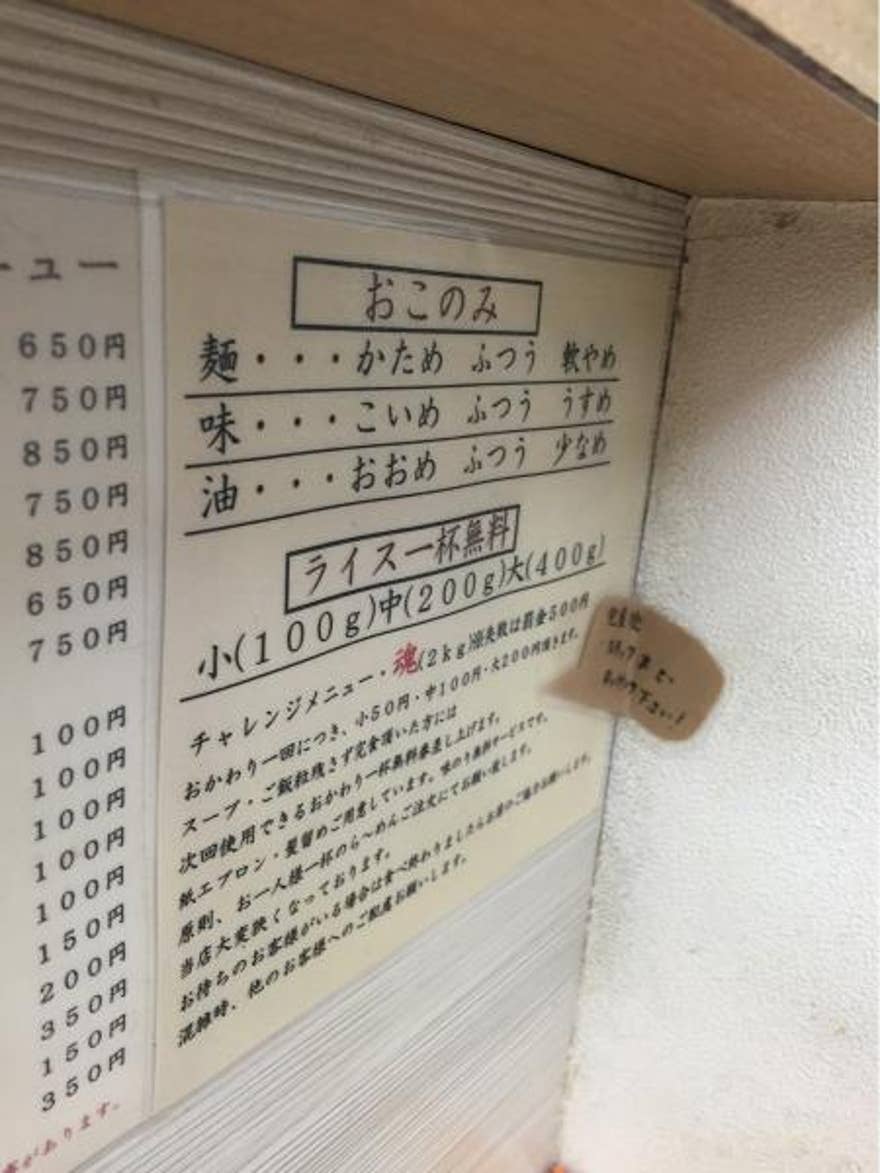 ーュー
650円
750円
850円
750円
850円
650円
750円
100円
100円
100円
100円
100円
150円
200円
350円
150円
350円
があります。
おこのみ
麺・・・かため ふつう 軟やめ
味・・・こいめ ふつう うすめ
油・・・おおめ ふつう 少なめ
ライス一杯無料
小(100g)中(200g)大(400g)
チャレンジメニュー・魂(2kg)※失敗は罰金500円
おかわり一回につき、小50円・中100円・大200円頂きます。
スープ・ご飯粒残さず完食頂いた方には
次回使用できるおかわり一杯無料券差し上げます。
紙エプロン・髪留めご用意しています。味のり無料サービスです。
原則、お一人様一杯のら〜めんご注文にてお願い致します。
当店大変狭くなっております。
お待ちのお客様がいる場合は食べ終わりましたらお席のご協力お願いします。
混雑時、他のお客様へのご配慮お願いします。
下さい!